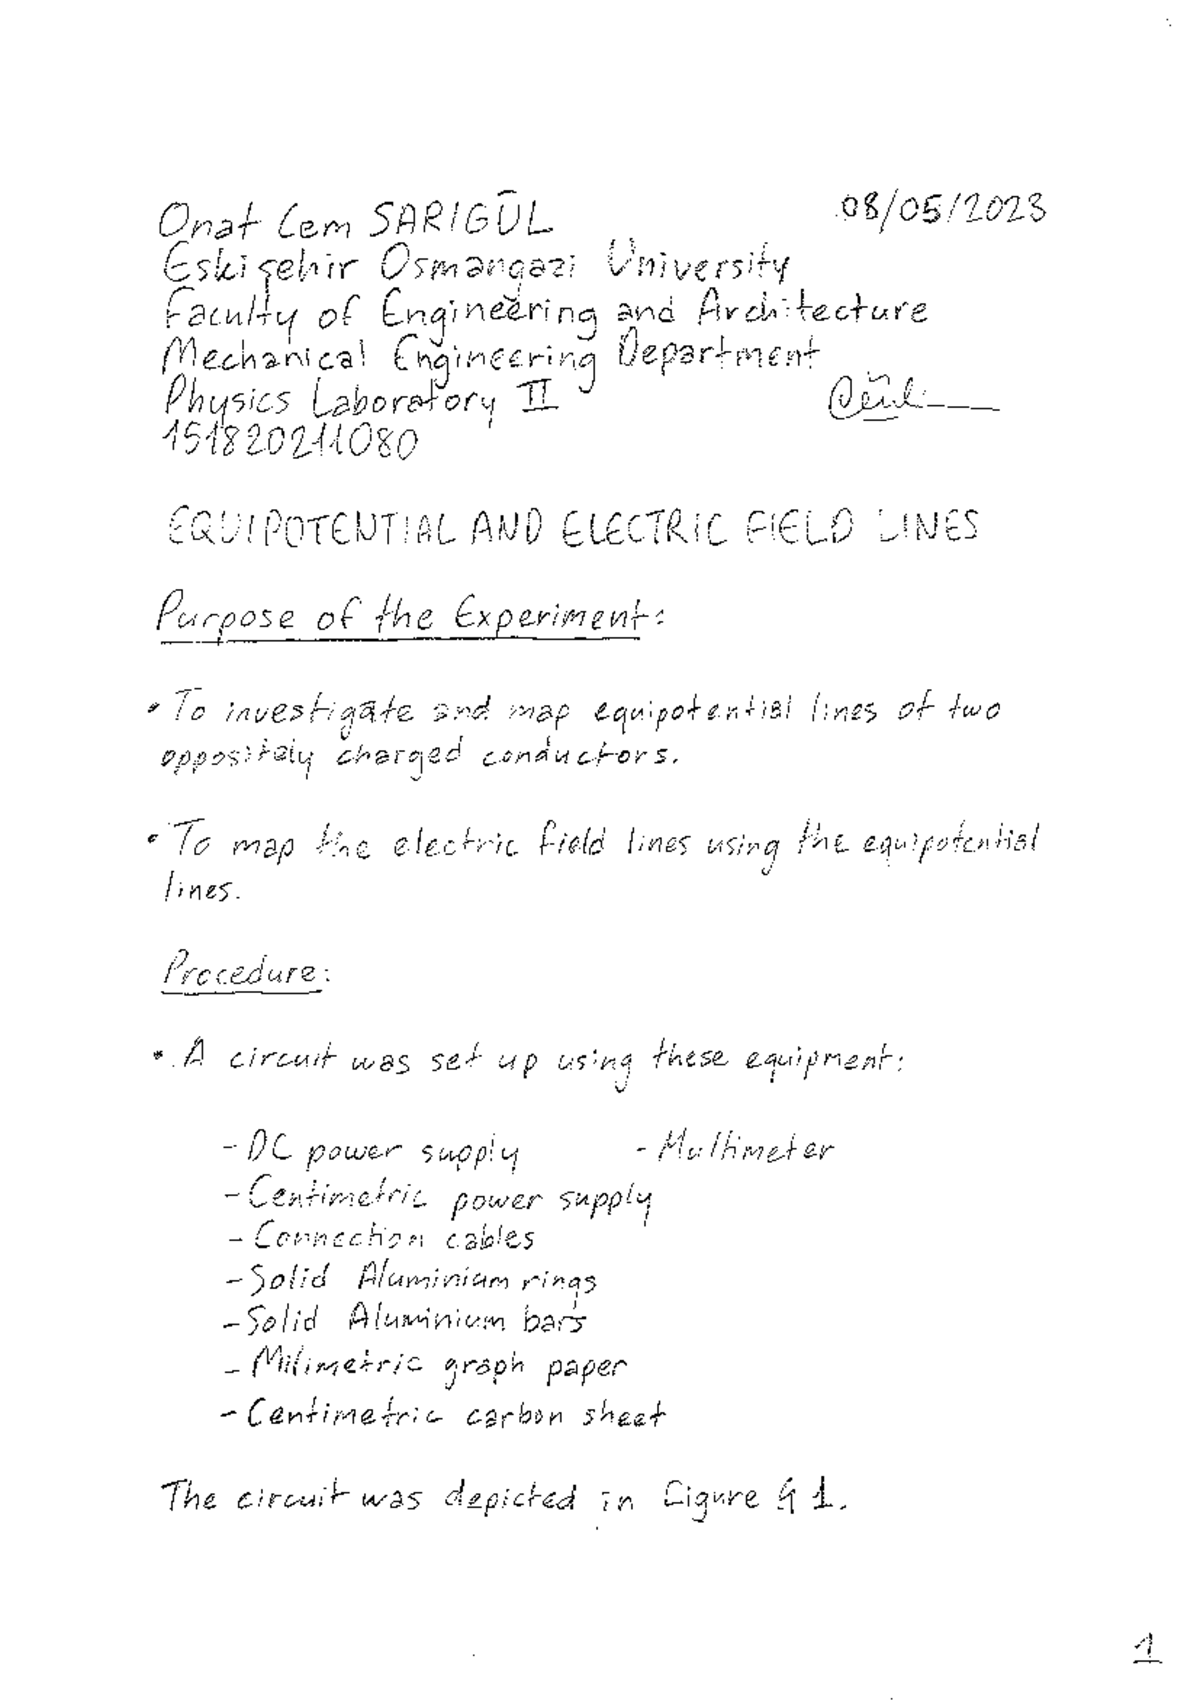 Onat Cem SARIGÜL
08/05/2023
Eskişehir Osmangazi University
Faculty of Engineering and Architecture
Mechanical Engineering Department
Physics Laboratory II
151820211080
EQUIPOTENTIAL AND ELECTRIC FIELD LINES
Purpose of the Experiment:
• To investigate and map equipotential lines of two
oppositely charged conductors.
• To map the electric field lines using the equipotential
lines.
Procedure:
• A circuit was set up using these equipment:
- DC power supply - Multimeter
- Centimetric power supply
- Connection cables
- Solid Aluminium rings
- Solid Aluminium bars
- Milimetric graph paper
- Centimetric carbon sheet
The circuit was depicted in Figure 1.
1